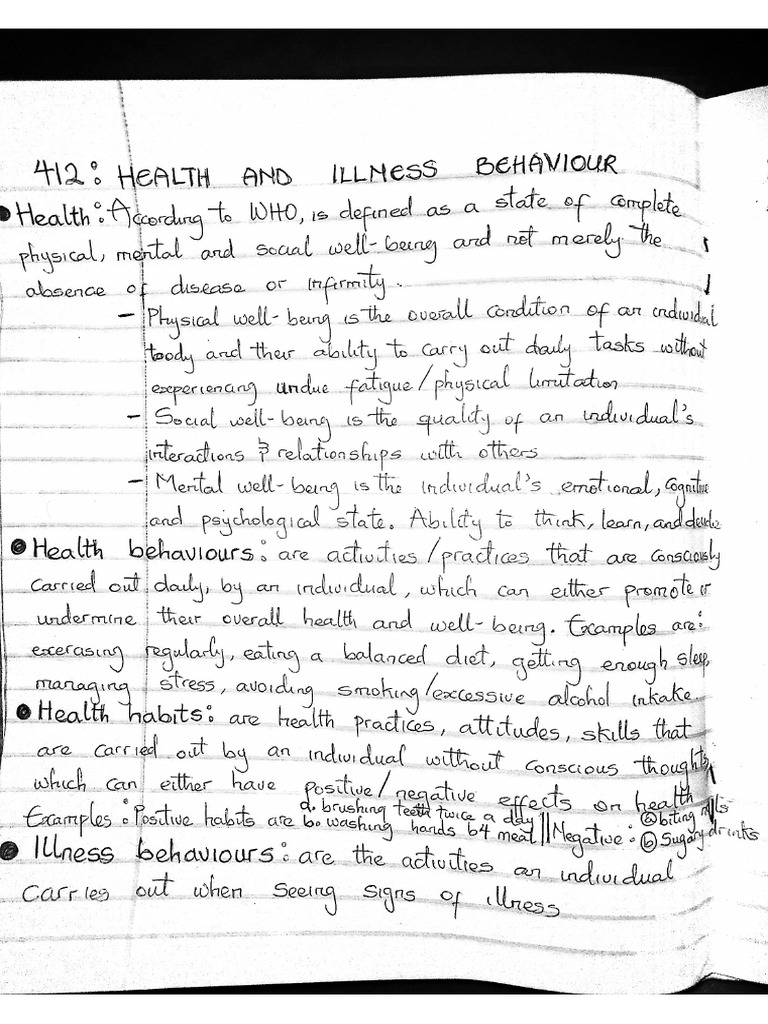 412: HEALTH AND ILLNESS BEHAVIOUR
• Health: According to WHO, is defined as a state of complete
physical, mental and social well-being and not merely the
absence of disease or infirmity.
– Physical well-being is the overall condition of an individual
body and their ability to carry out daily tasks without
experiencing undue fatigue/physical limitation
– Social well-being is the quality of an individual's
interactions & relationships with others
– Mental well-being is the individual's emotional, cognitive
and psychological state. Ability to think, learn, and decide
• Health behaviours: are activities/practices that are consciously
carried out daily, by an individual, which can either promote or
undermine their overall health and well-being. Examples are:
excerasing regularly, eating a balanced diet, getting enough sleep,
managing stress, avoiding smoking/excessive alcohol inkake
• Health habits: are health practices, attitudes, skills that
are carried out by an individual without conscious thoughts,
which can either have positive/negative effects on health
Examples: Positive habits are a. brushing teeth twice a day b. washing hands b4 meal || Negative: (a) biting nails (b) Sugary drinks
• Illness behaviours: are the activities an individual
carries out when seeing signs of illness